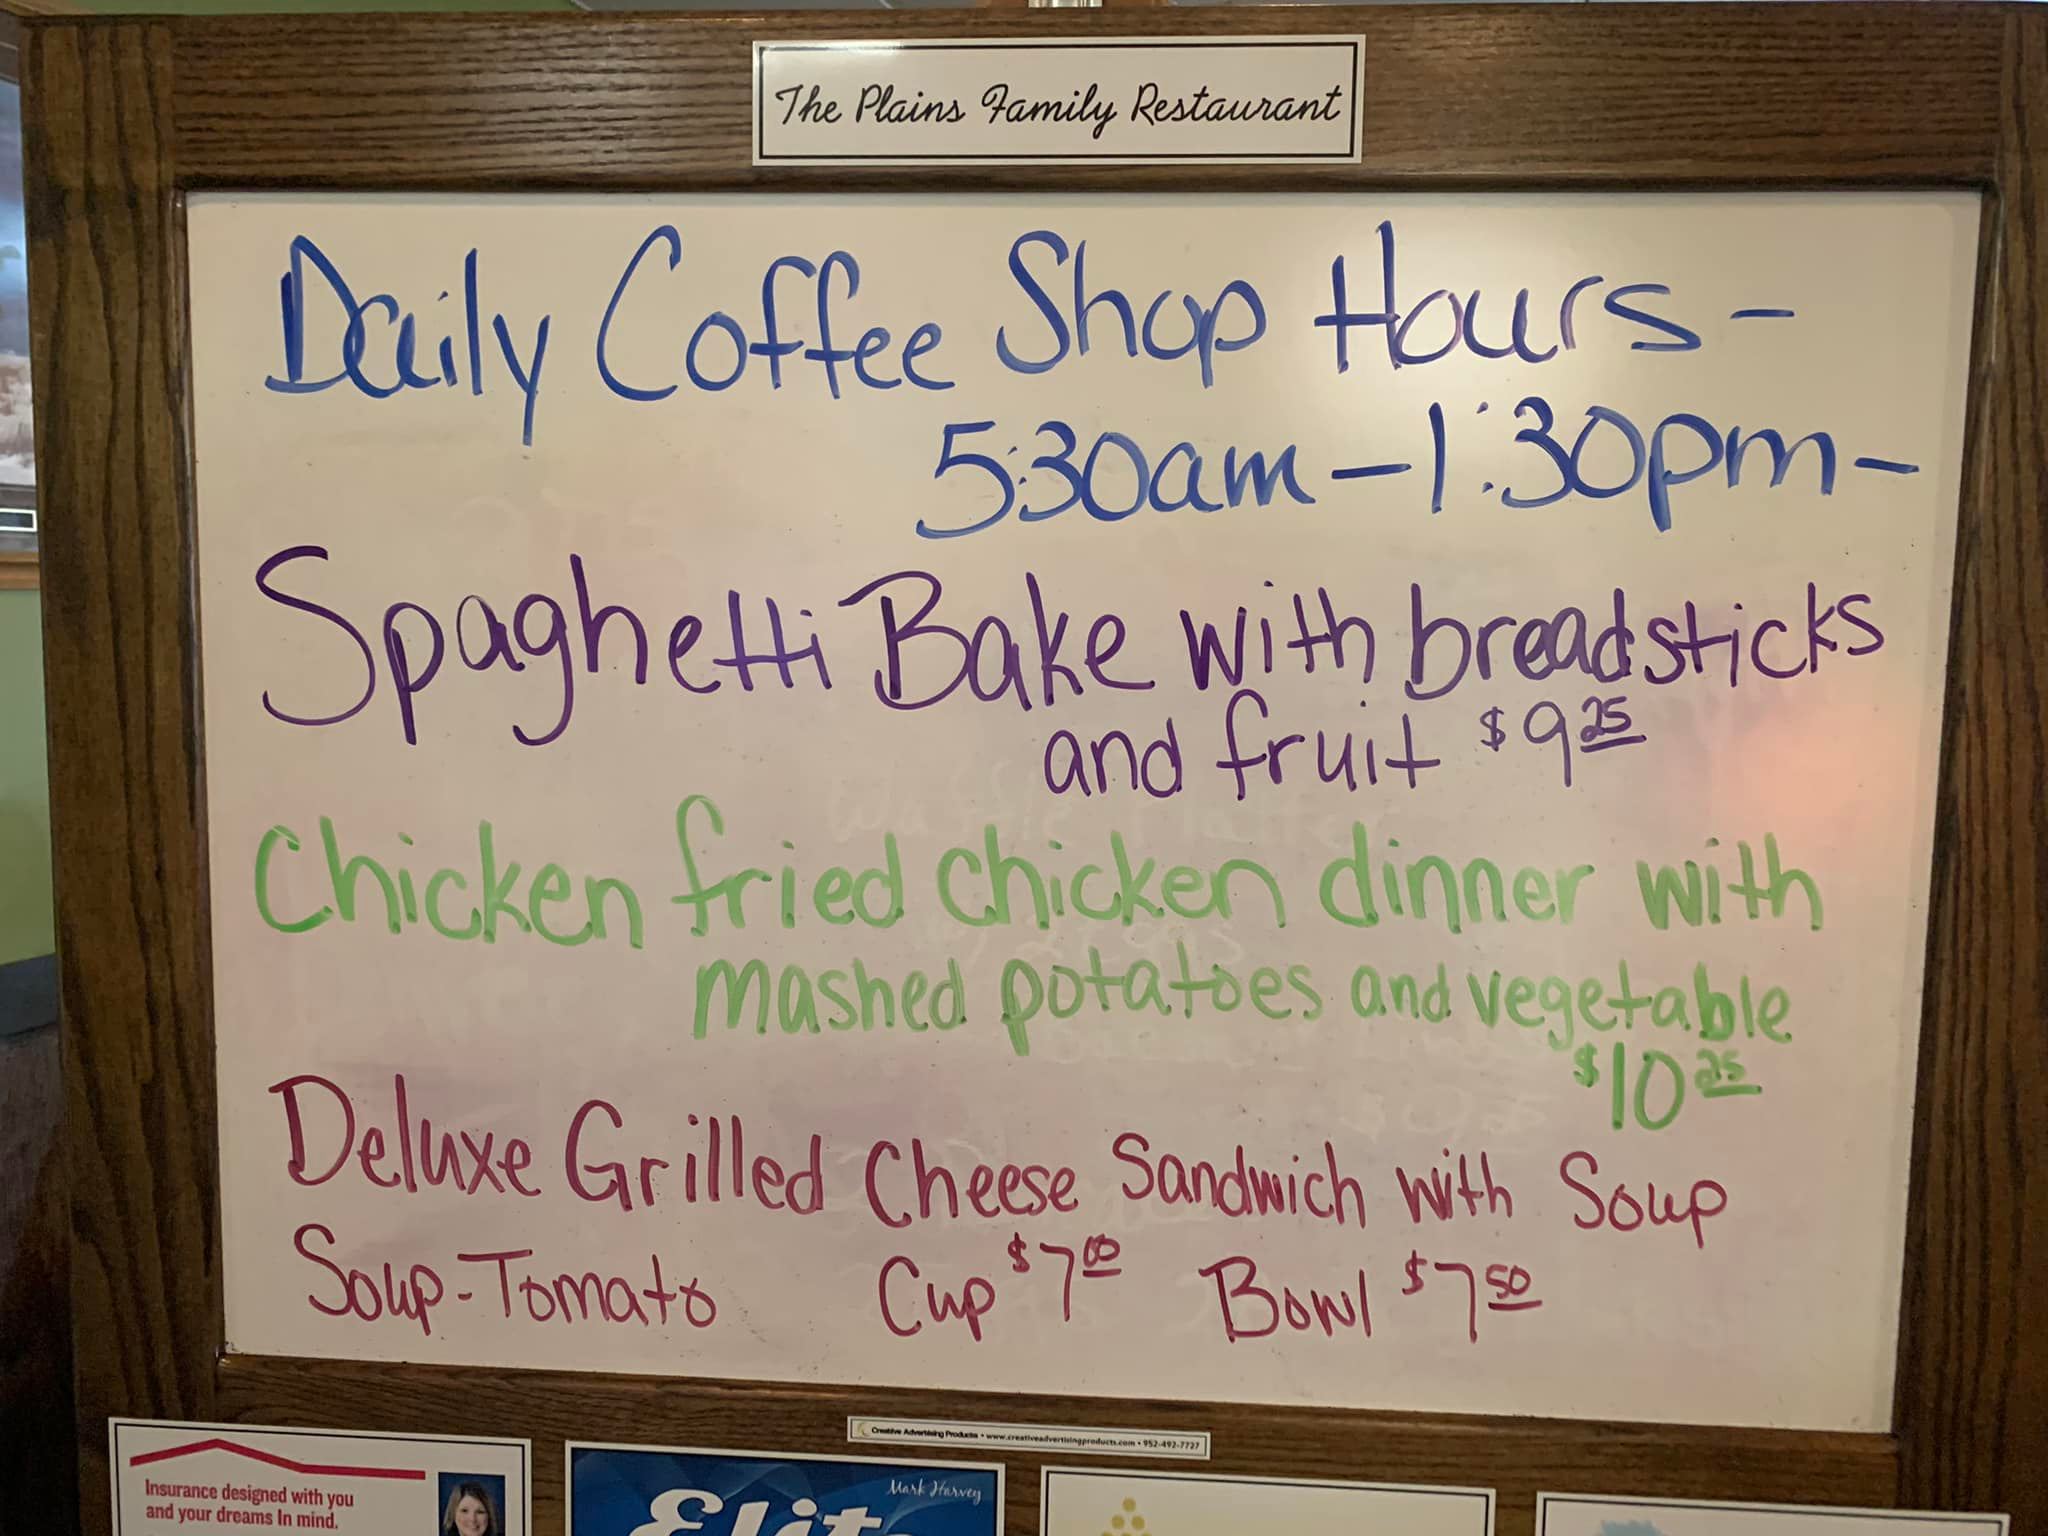 The Plains Family Restaurant
Daily Coffee Shop Hours -
5:30am - 1:30pm -
Spaghetti Bake with breadsticks
and fruit $9.25
Chicken fried chicken dinner with
mashed potatoes and vegetable
$10.25
Deluxe Grilled Cheese Sandwich with Soup
Soup - Tomato Cup $7.00 Bowl $7.50
Creative Advertising Products • www.creativeadvertisingproducts.com • 952-492-7727
Insurance designed with you
and your dreams In mind.
Mark Harvey